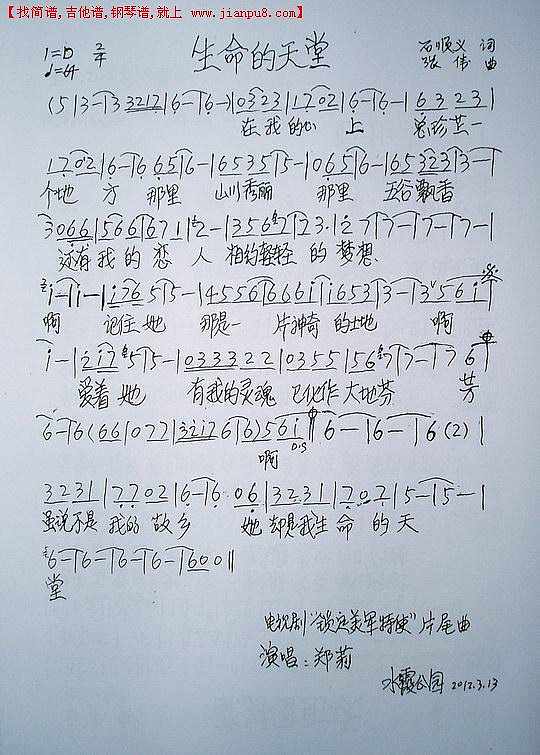 【找简谱,吉他谱,钢琴谱,就上 www.jianpu8.com】
生命的天堂
1=D 2/4
♩=64
石顺义 词
张伟 曲
(5|3-|3 3 3212|6-|6-)|0323|1702|6-|6-|6323|
在我的心上 总珍藏一
1702|6-|6 65|6-|6535|5-|065|6-|65323|3-|
个地方 那里 山川秀丽 那里 五谷飘香
3066|566|671|2-|356|723.|27|7-|7-|7-|
还有我的恋人 相约轻轻的梦想
i-|i-|i765|5-|4556|666i|i653|3-|356i|
啊 记住她 那是一片神奇的土地 啊
i-|2i7|5-|5-|033322|0355|567|7-|76|
爱着她 有我的灵魂 已化作大地芬芳
6-|6(66|077|32i7|66)|56i|6-|6-|6(2)|
啊
D.S
3231|7702|6-|6 06|3231|702|5-|5-|
虽说不是我的故乡 她却是我生命的天
6-|6-|6-|6-|600||
堂
电视剧“锁定美军特使”片尾曲
演唱:郑莉
水霞公园 2012.3.13